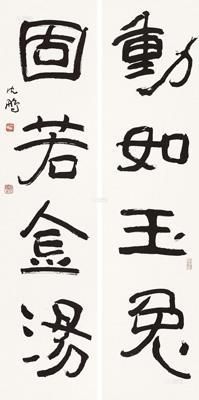 動如玉兔
固若金湯
沈鵬